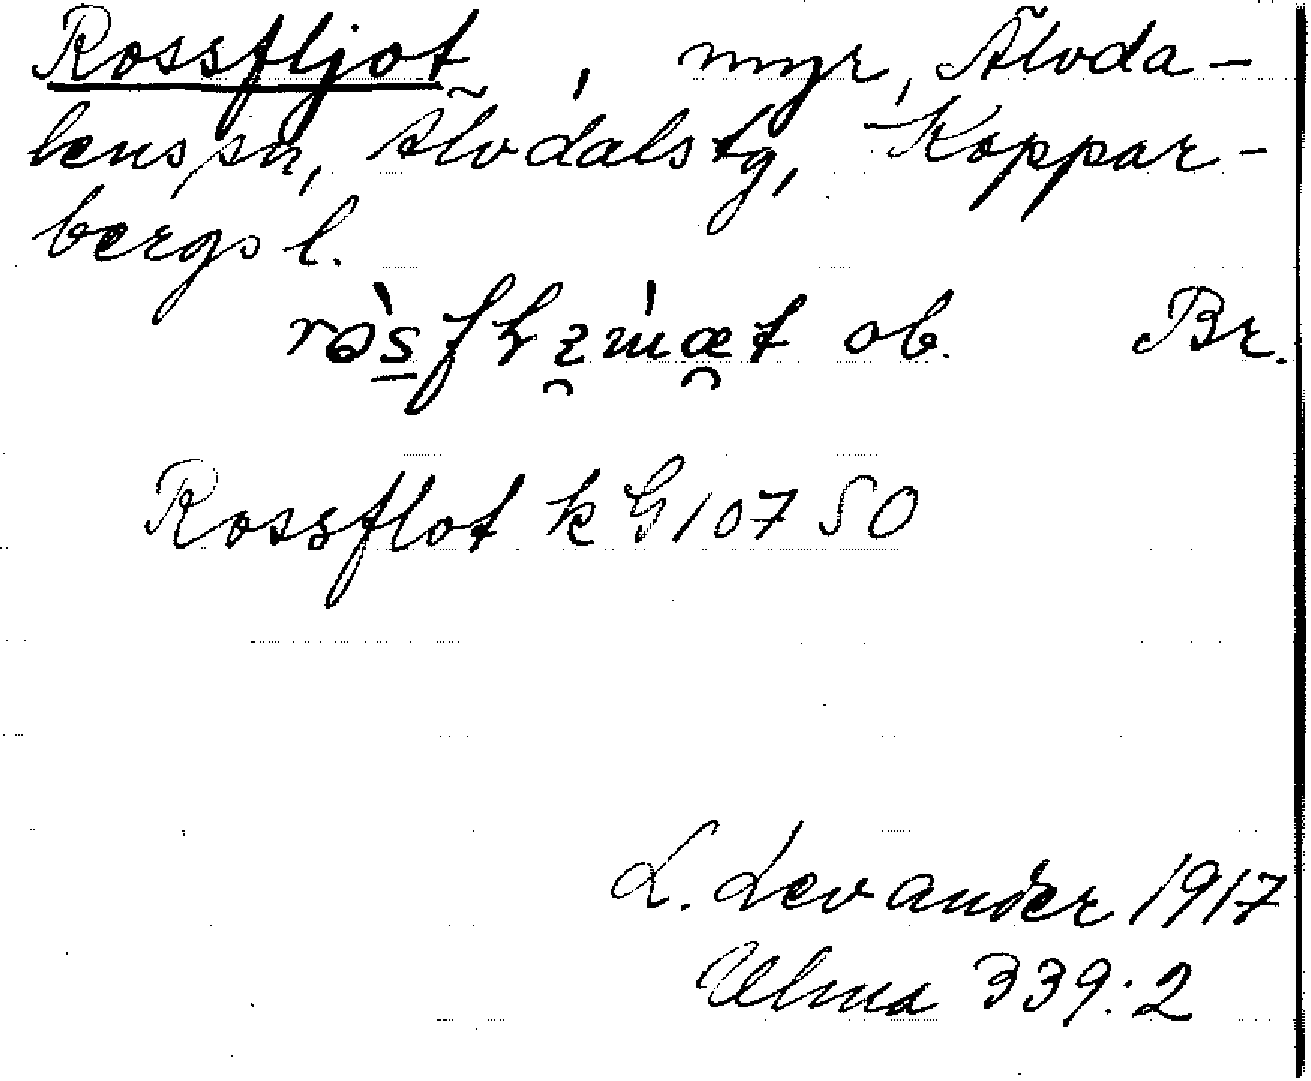 Rossfljot, myr, Älvda-
lens sn, Älvdals tg, Koppar-
bergs l.
ob. Br.
Rossflot k G 107 50
L. Levander 1917
Ulma 339:2